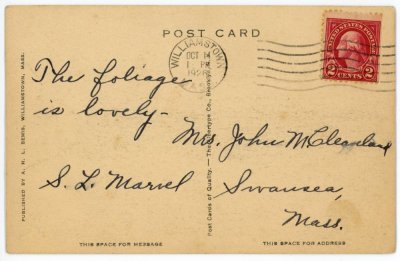 POST CARD
WILLIAMSTOWN
OCT 14
1 PM
MASS.
UNITED STATES POSTAGE
2 CENTS 2
The foliage
is lovely-
S. L. Marvel
Mrs. John McCleveland
Swansea,
Mass.
PUBLISHED BY A. H. L. BEMIS, WILLIAMSTOWN, MASS.
Post Cards of Quality. — The Albertype Co., Brooklyn
THIS SPACE FOR MESSAGE
THIS SPACE FOR ADDRESS